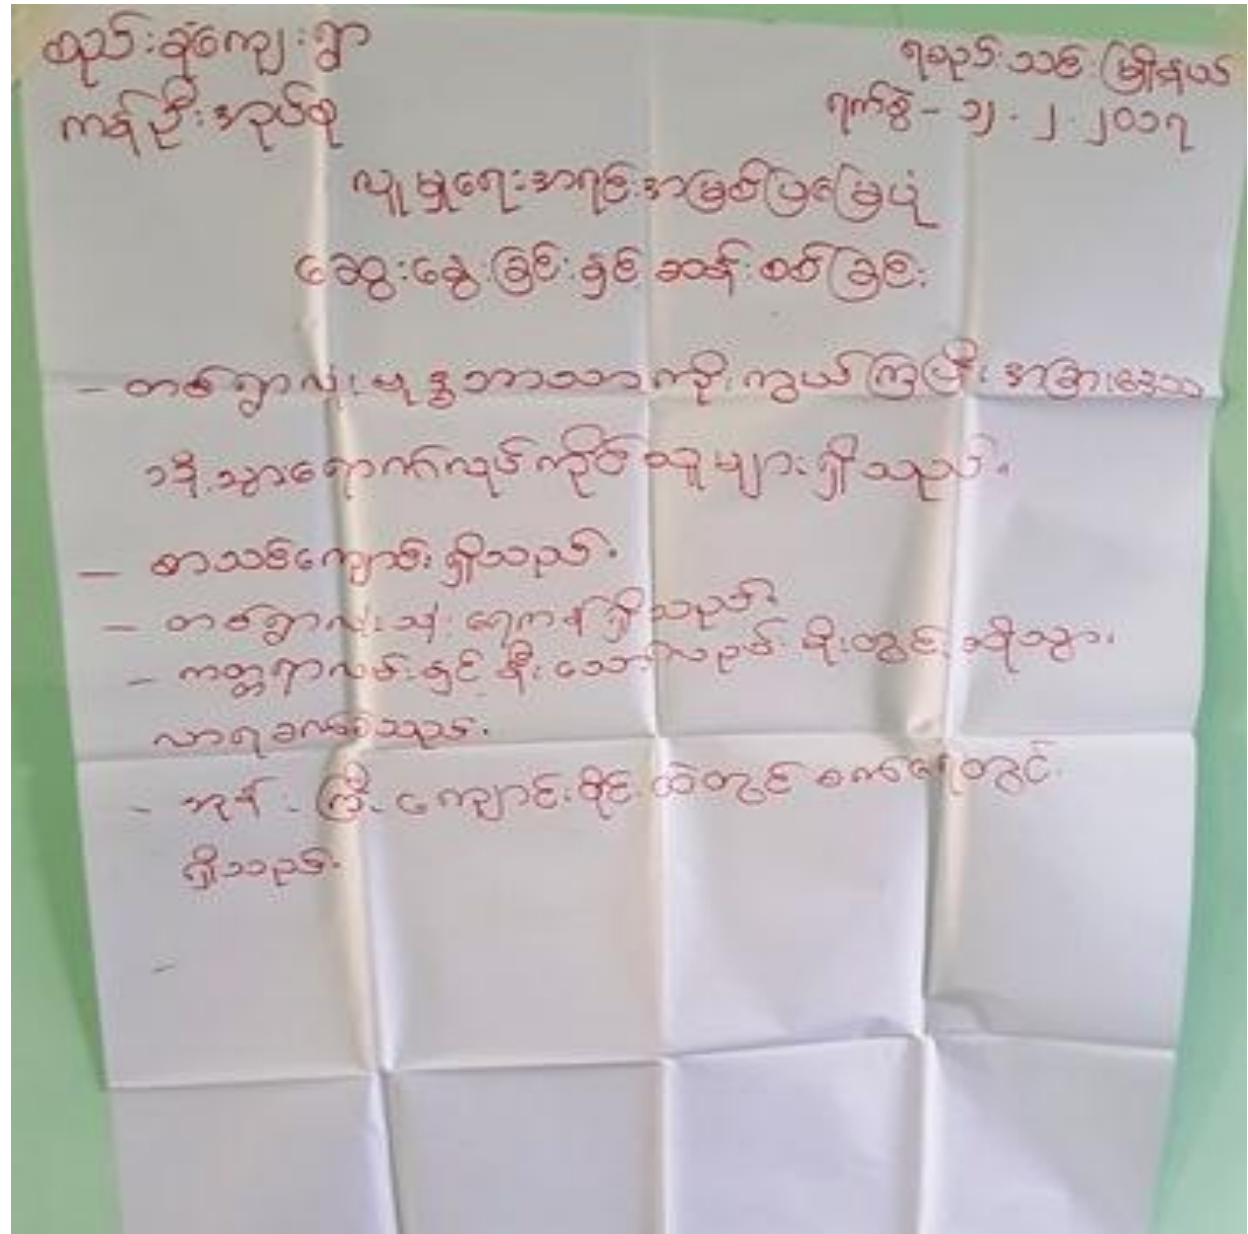 ထည်းခုံကျေးရွာ
ရေစည်းသစ်မြို့နယ်
ကန်ဦးအုပ်စု
ရက်စွဲ - ၁၂.၂.၂၀၁၇
လူမှုရေးအရင်းအမြစ်ပြမြေပုံ
ဆွေးနွေးခြင်းနှင့်ဆန်းစစ်ခြင်း
- တစ်ရွာလုံးဗုဒ္ဓဘာသာကိုးကွယ်ကြပြီးအခြားဒေသ
သို့သွားရောက်လုပ်ကိုင်သူများရှိသည်။
- စာသင်ကျောင်းရှိသည်။
- တစ်ရွာလုံးသုံးရေကန်ရှိသည်။
- ကတ္တရာလမ်းနှင့်နီးသော်လည်းမိုးတွင်းသွား
လာရခက်ခဲသည်။
- ဘုန်းကြီးကျောင်းဝိုင်းထဲတွင်စက်ရေတွင်း
ရှိသည်။
-